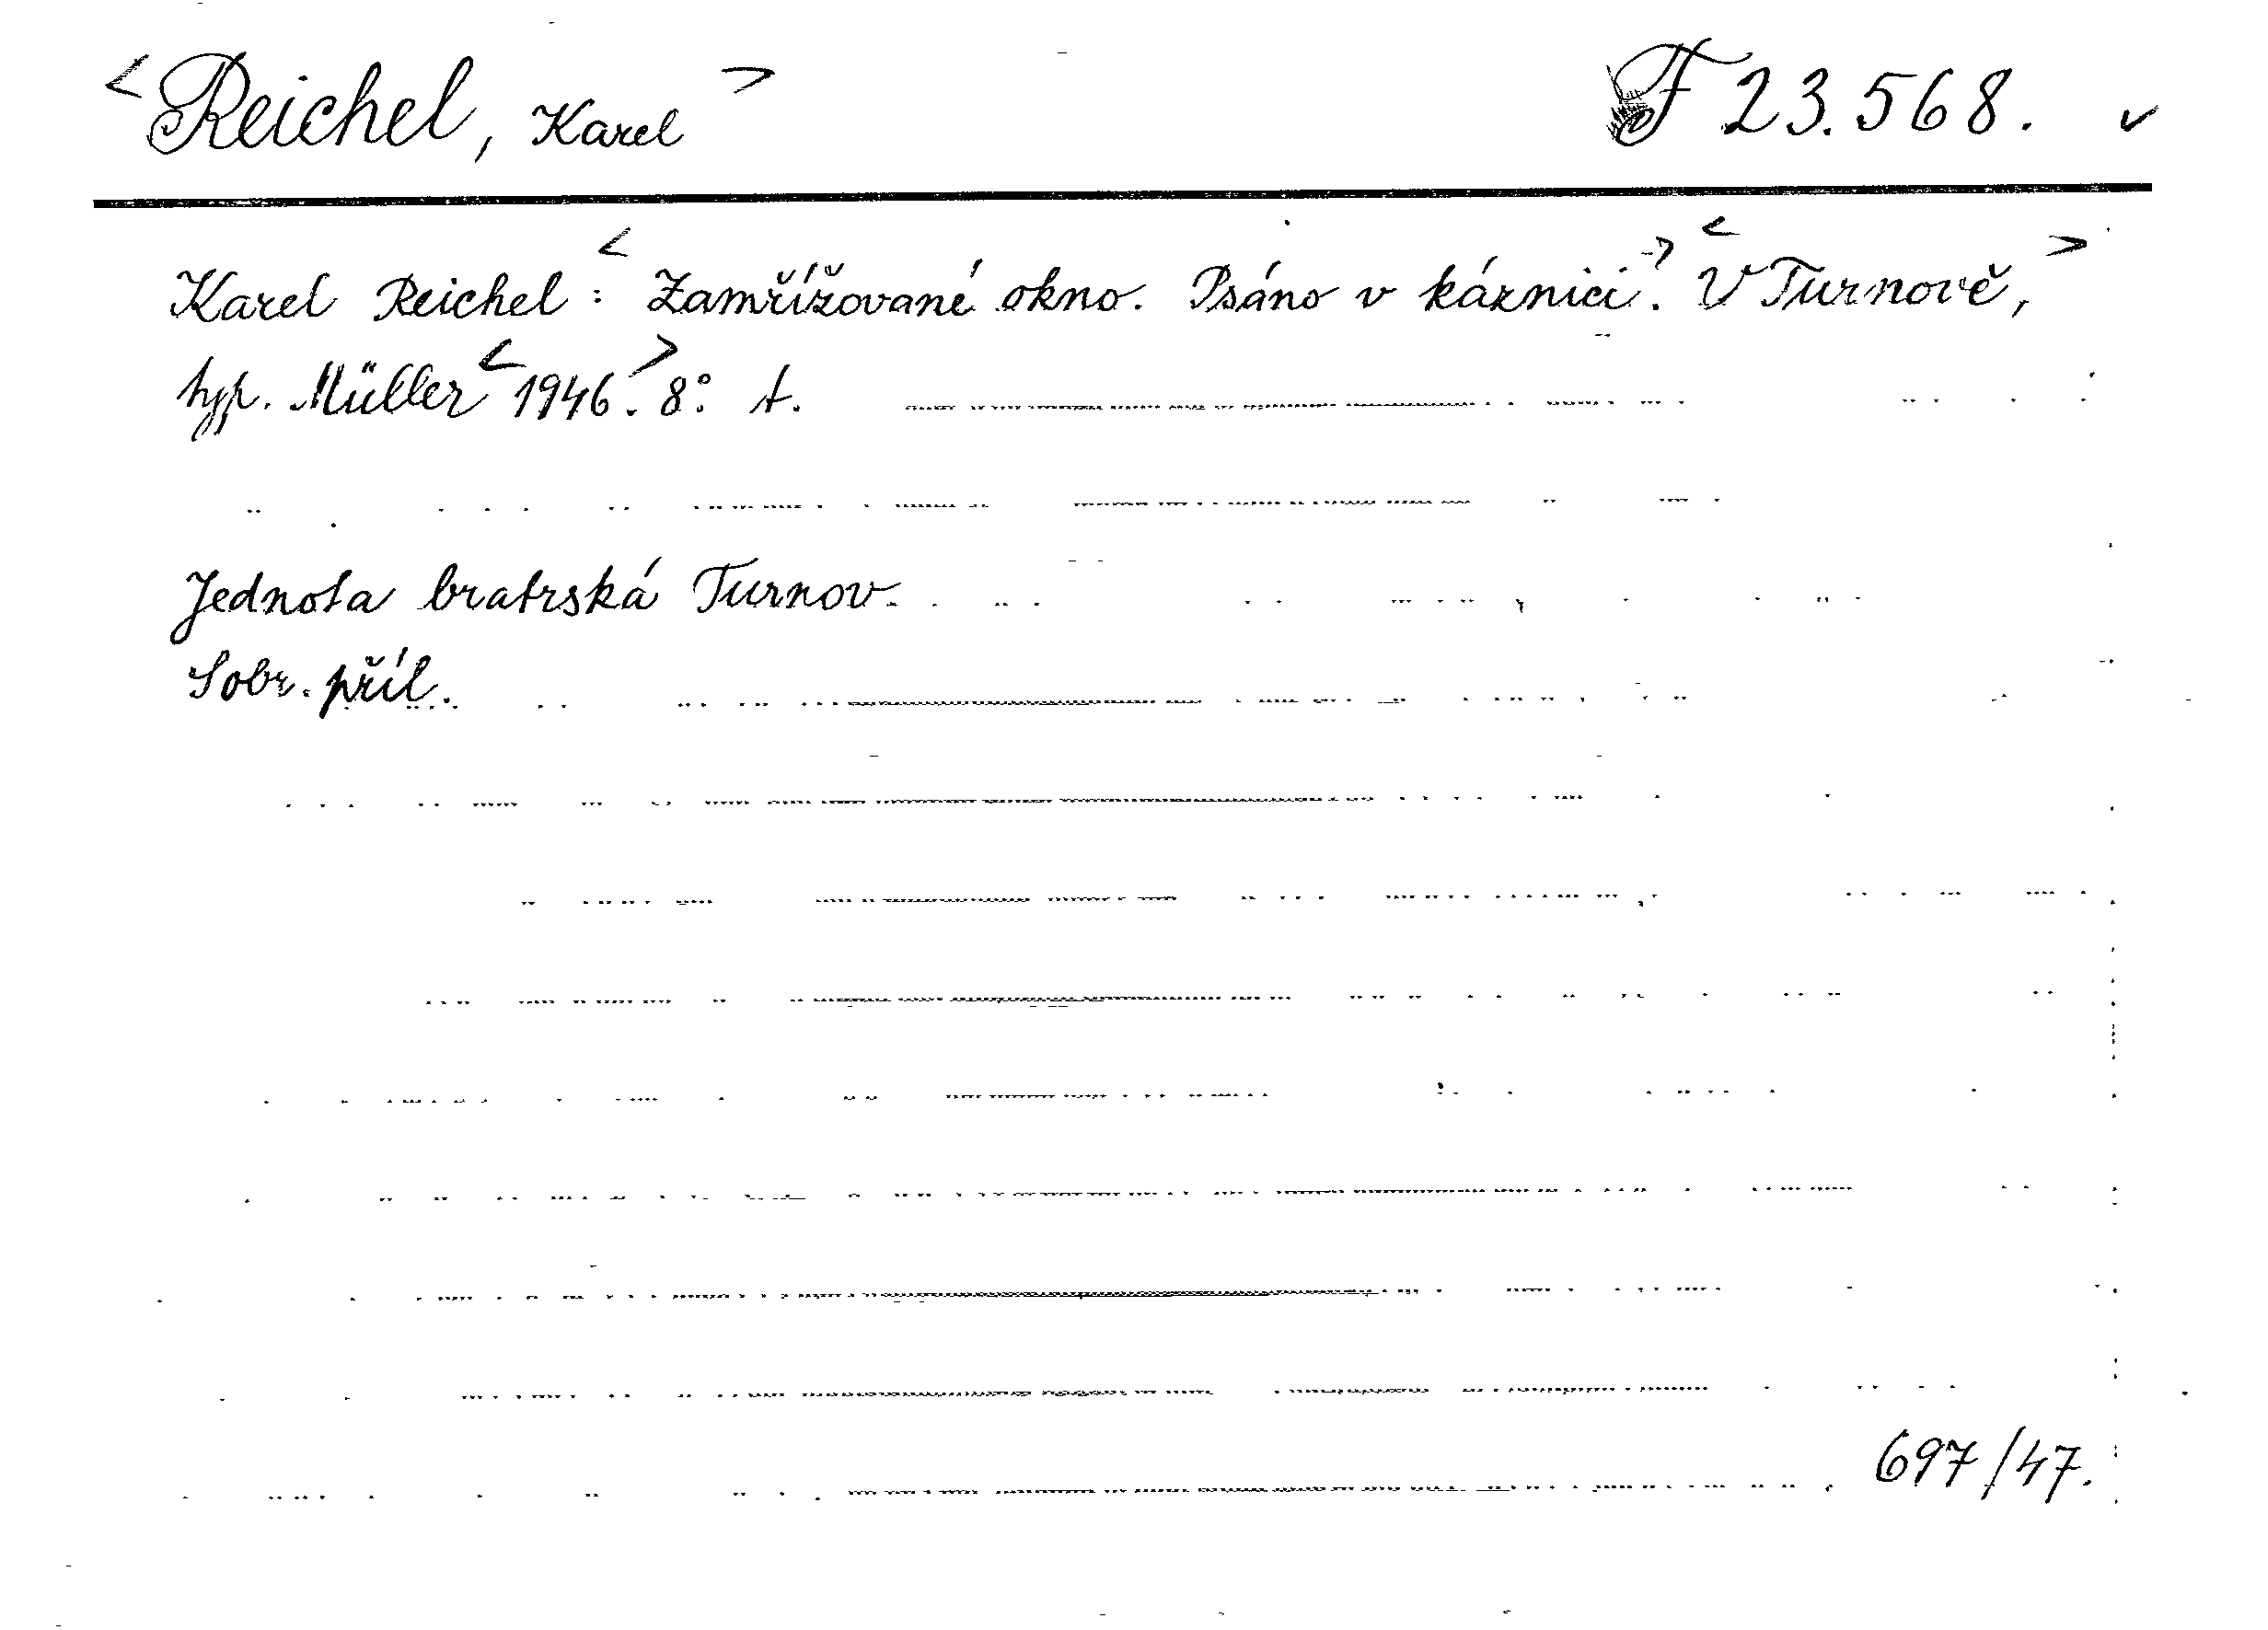 <Reichel, Karel> F 23.568. v
Karel Reichel: <Zamřížované okno. Psáno v káznici.> <V Turnově,>
typ. Müller <1946.> 8° A.
Jednota bratrská Turnov.
Sobr. příl.
697/47.